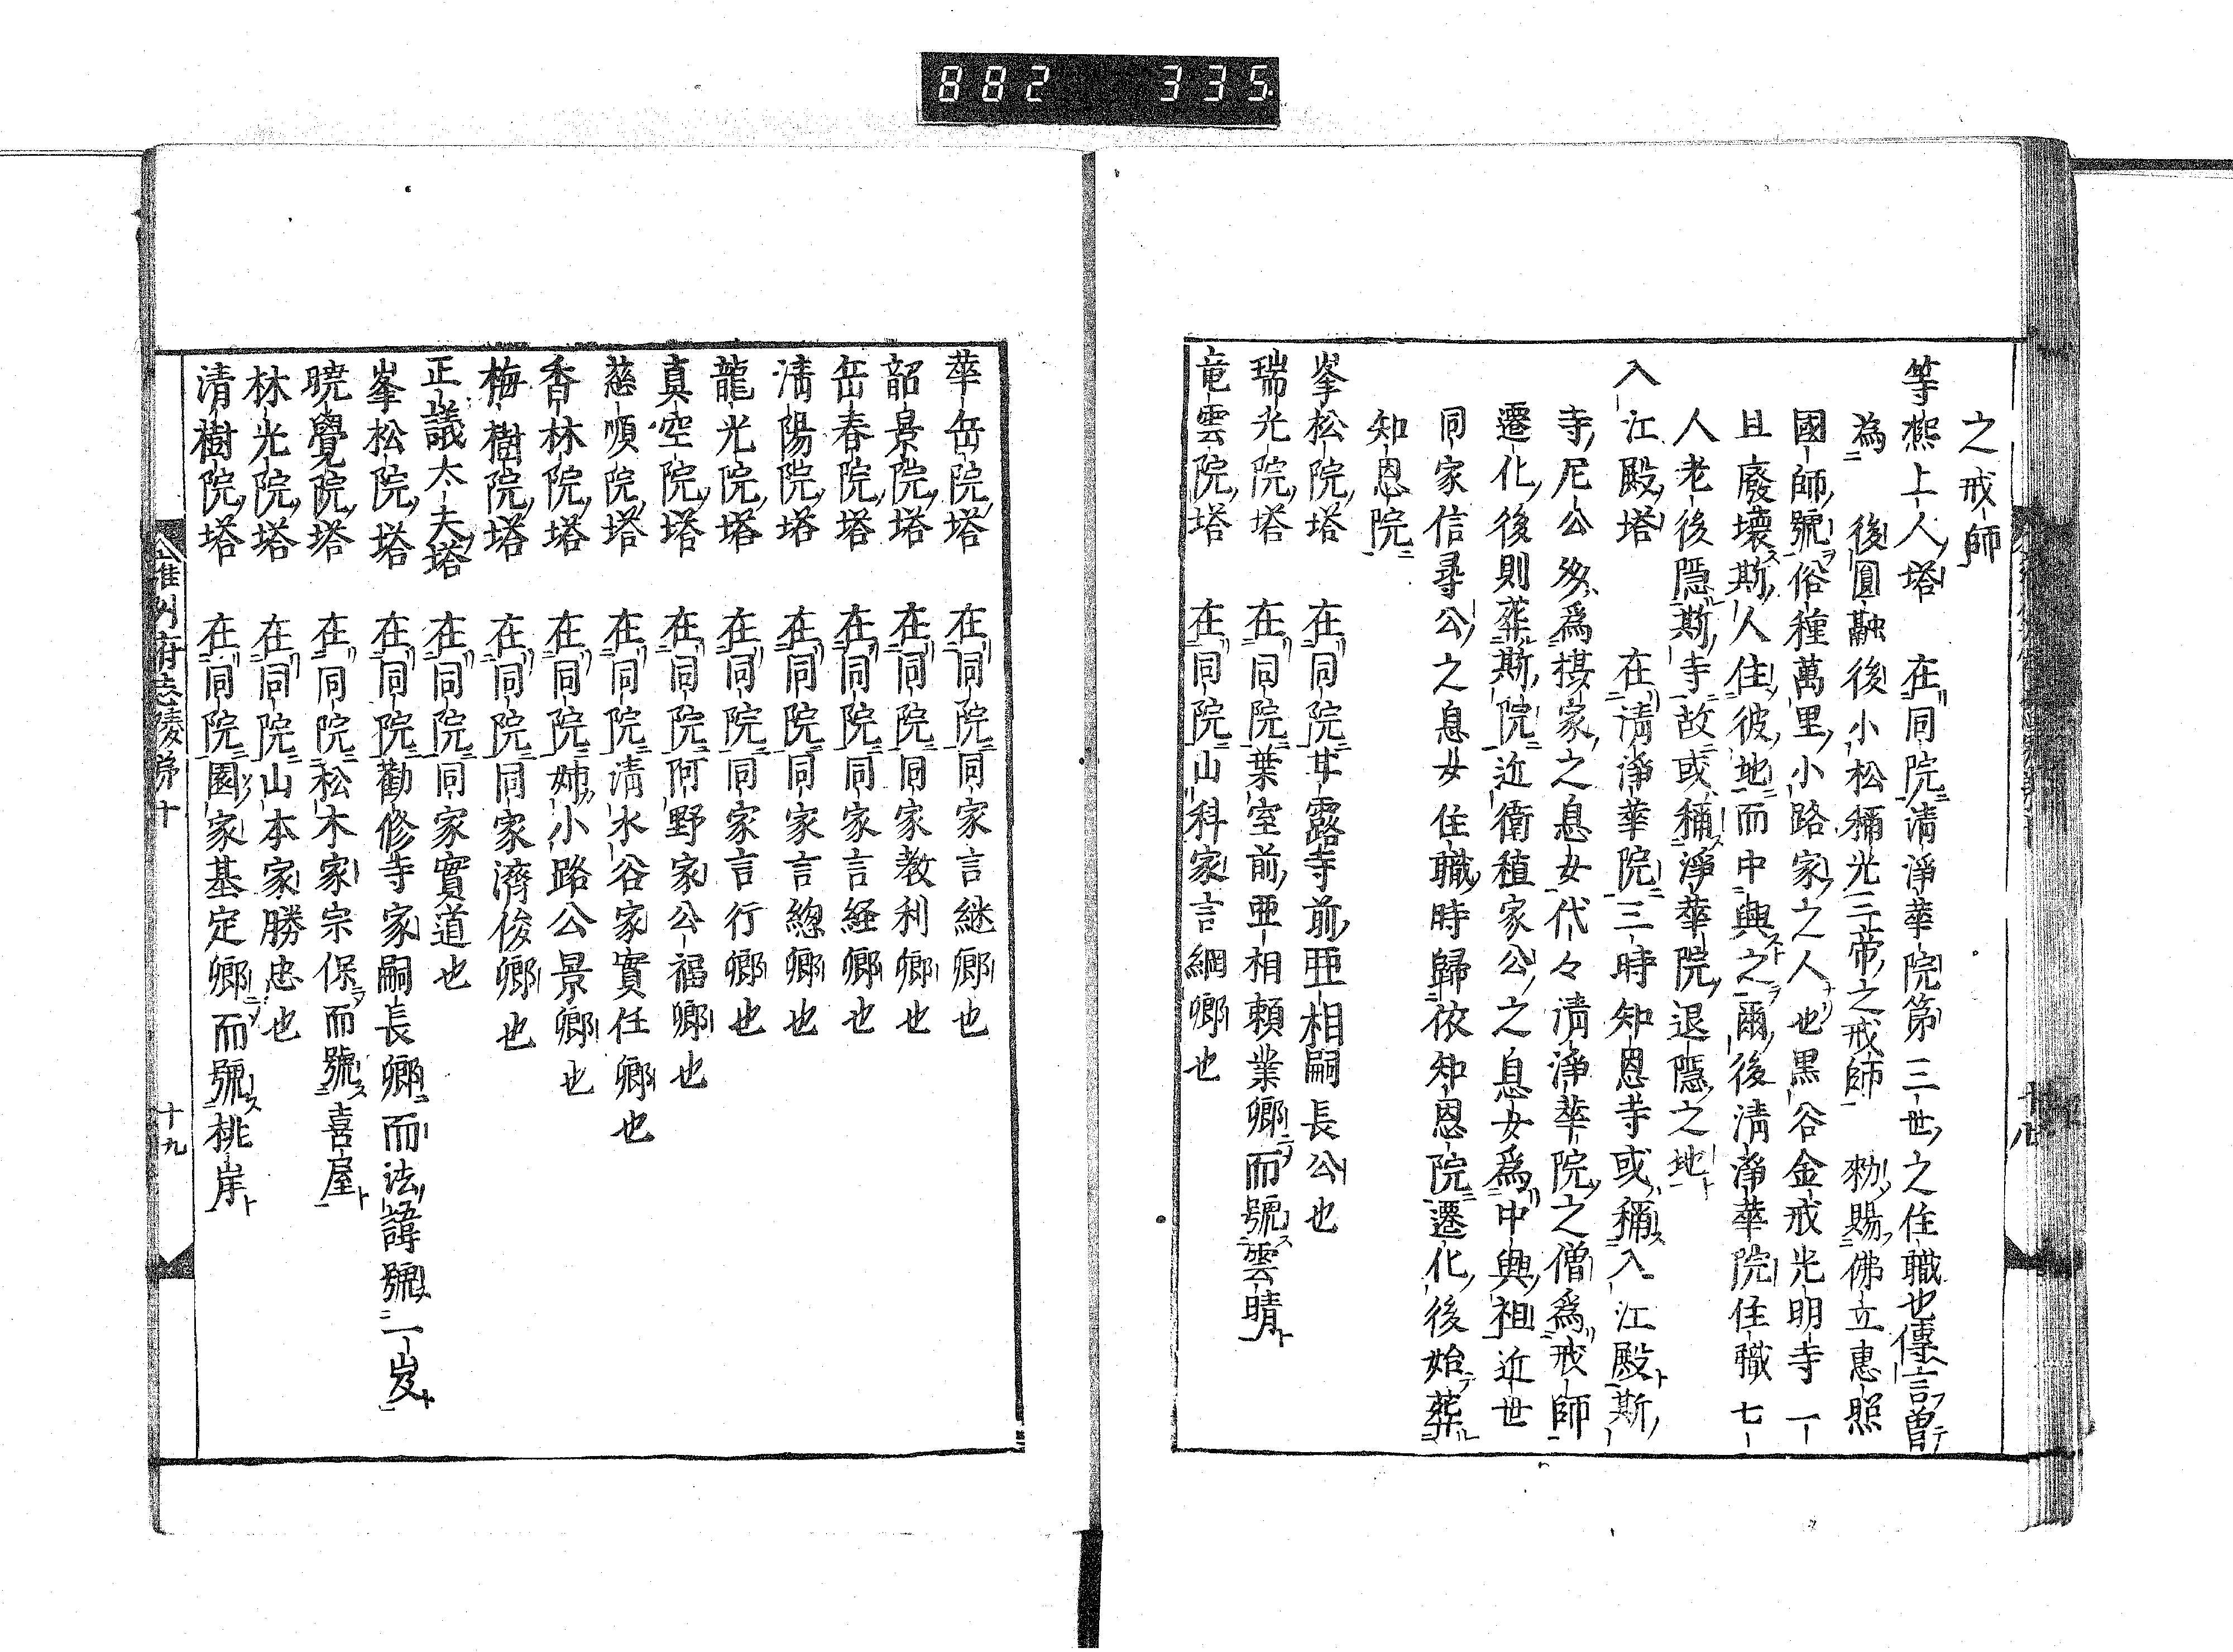 882 335
之戒師
等熈上人塔 在同院清淨華院第三世之住職也傳言曽
為 後圓融後小松稱光三帝之戒師 勑賜佛立惠照
國師號俗種萬里小路家之人也黒谷金戒光明寺一
且廢壞斯人住彼地而中興之爾後淸淨華院住職七
人老後隱斯寺故或稱淨華院退隱之地
入江殿塔 在淸淨華院三時知恩寺或稱入江殿斯
寺尼公多爲棋家之息女代々淸淨華院之僧爲戒師
遷化後則葬斯院近衛稙家公之息女爲中興祖近世
同家信尋公之息女住職時歸依知恩院遷化後始葬
知恩院
峯松院塔 在同院甘露寺前亞相嗣長公也
瑞光院塔 在同院葉室前亜相頼業卿而號雲晴
竜雲院塔 在同院山科家言綱卿也
華岳院塔 在同院同家言継卿也
韶景院塔 在同院同家教利卿也
岳春院塔 在同院同家言経卿也
淸陽院塔 在同院同家言緫卿也
龍光院塔 在同院同家言行卿也
真空院塔 在同院阿野家公福卿也
慈順院塔 在同院清水谷家實任卿也
香林院塔 在同院姉小路公景卿也
梅樹院塔 在同院同家濟俊卿也
正議太夫塔 在同院同家實道也
峯松院塔 在同院勸修寺家嗣長卿而法諱號一岌
曉覺院塔 在同院松木家宗保而號喜屋
林光院塔 在同院山本家勝忠也
清樹院塔 在同院園家基定卿而號桃岸
雍州府志陵第十 十九